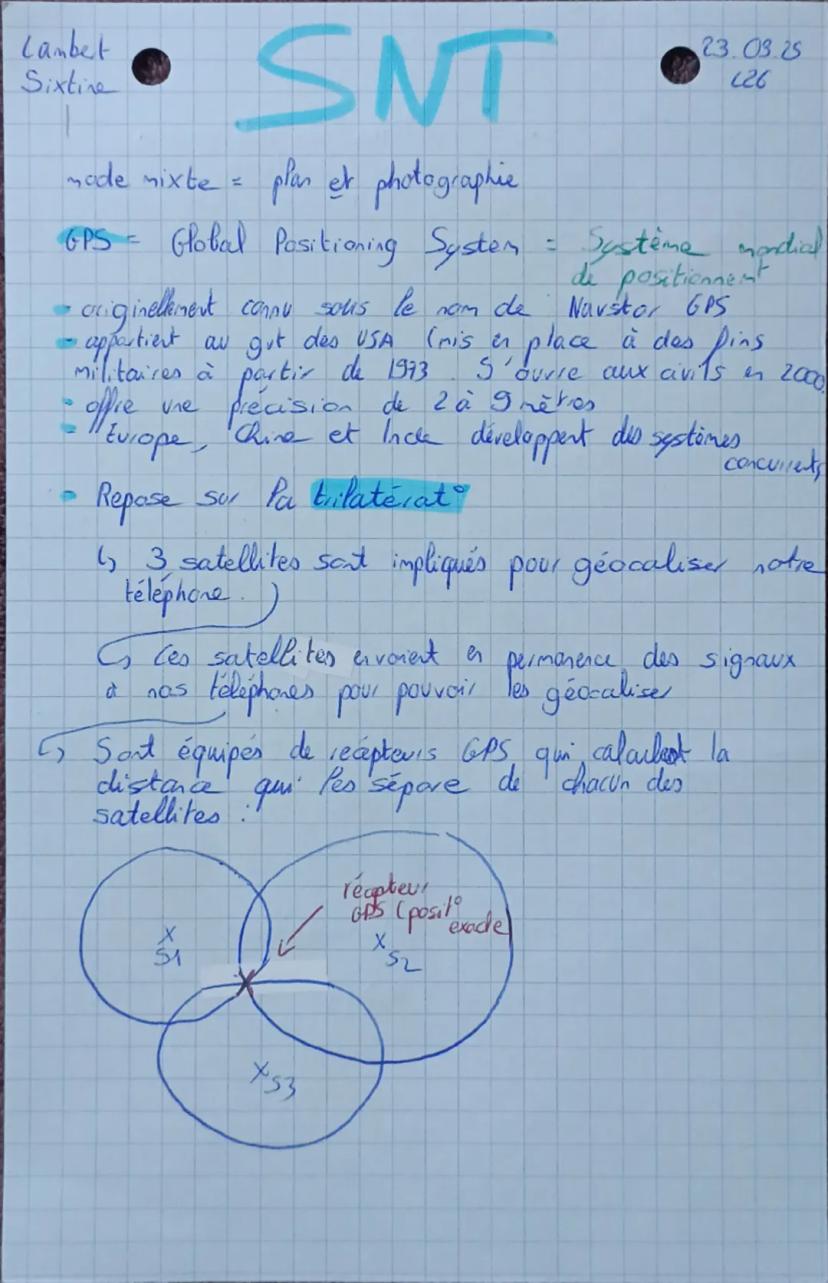 Lambert
Sixtine
SNT
23.09.25
L26
mode mixte = plan et photographie
GPS = Global Positioning System = Système mondial
de positionnemt
- originellement connu sous le nom de Navstar GPS
- appartient au gvt des USA (mis en place à des fins
militaires à partir de 1973. S'ouvre aux civils en 2000
- offre une précision de 2 à 9 mètres
- Europe, Chine et Inde développent des systèmes
concurrents
- Repose sur la trilatérat°
↳ 3 satellites sont impliqués pour géocaliser notre
téléphone.
↳ Ces satellites envoient en permanence des signaux
à nos téléphones pour pouvoir les géocaliser
↳ Sont équipés de recépteurs GPS qui calculent la
distance qui les sépare de chacun des
satellites :
récepteur
GPS (posit°
exacte
S1
S2
S3